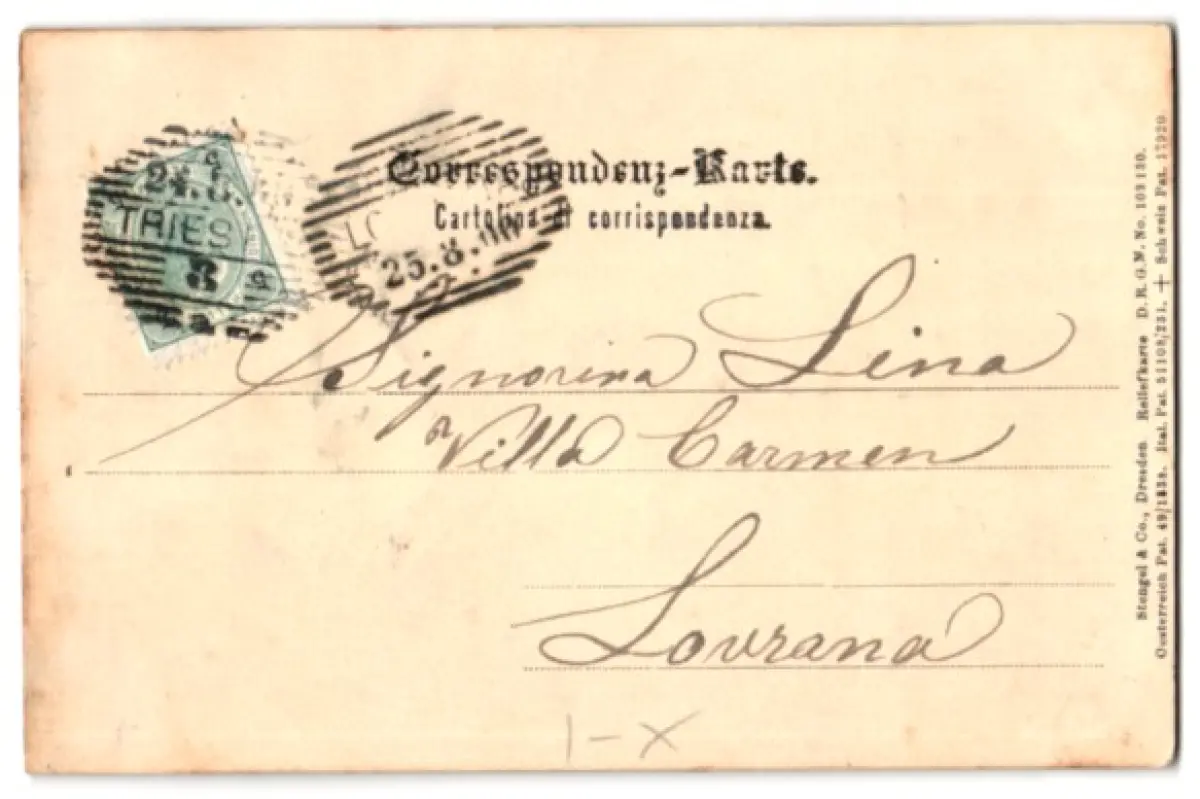 Correspondenz-Karte.
Cartolina di corrispondenza.
TRIES
3
25.8.
Signorina Lina
Villa Carmen
Lovrana
1-X
Stengel & Co., Dresden Reliefkarte D. R. G. M. No. 103 130.
Oesterreich Pat. Ital. Pat. 51108/231. + Schweiz Pat.